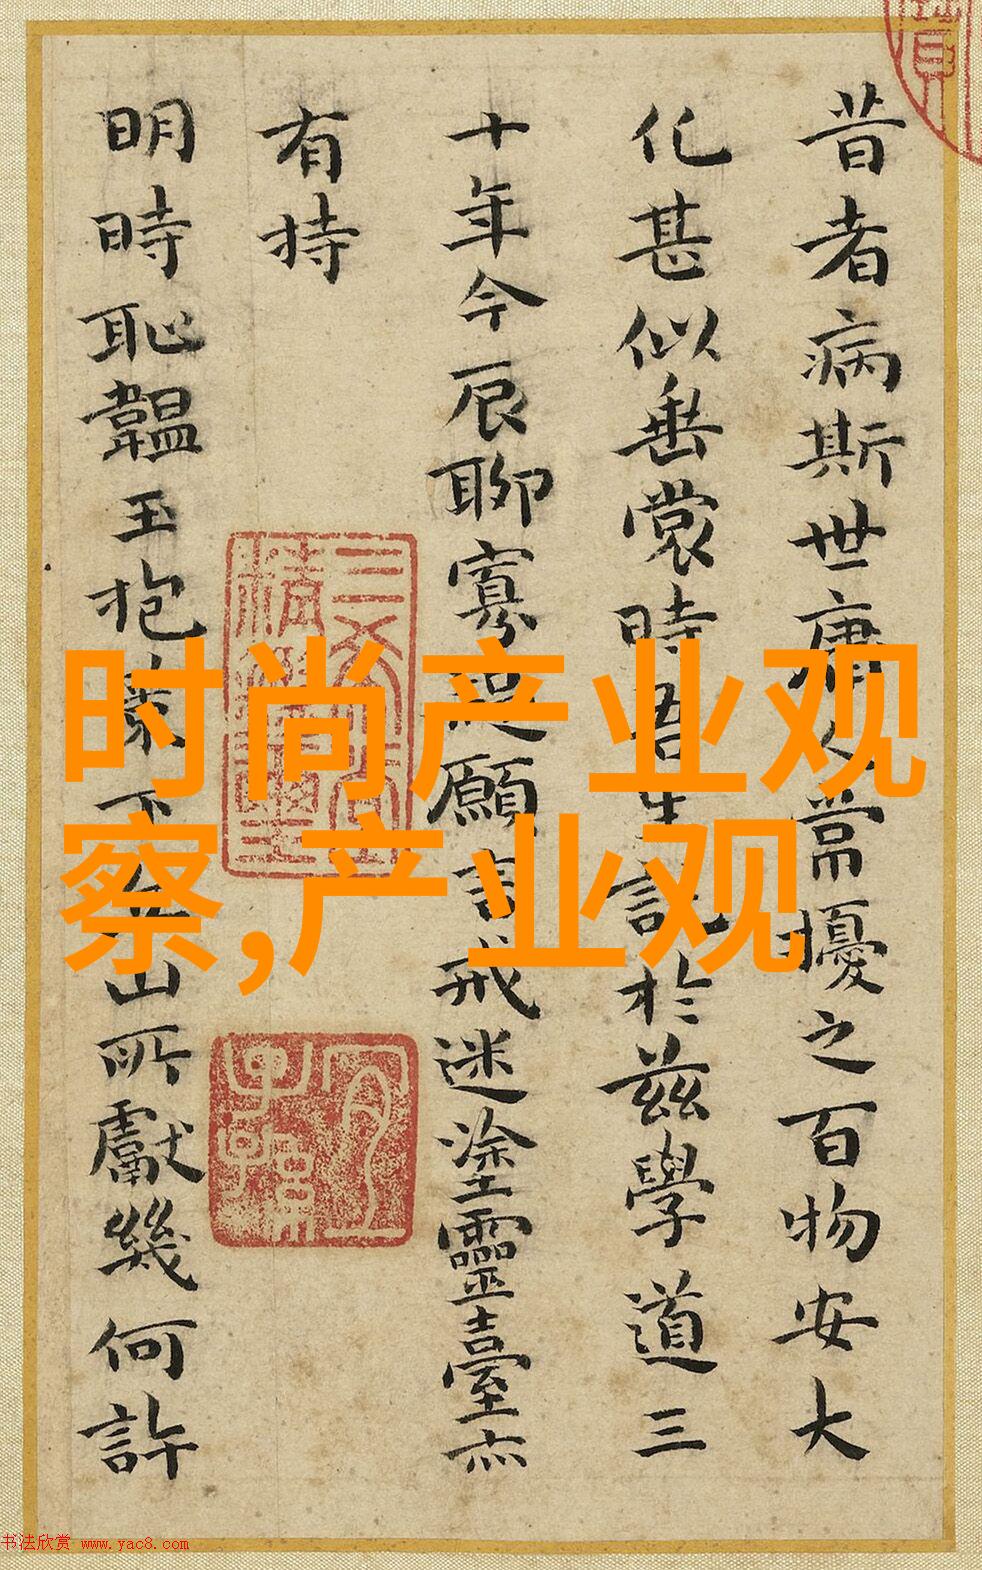 昔者病斯世庸人常擾之百物安大
化甚似垂裳時吾生說於茲學道三
十年今辰聊寡過願言戒迷塗靈臺亦
有持
明時恥韞玉抱璞不在山所獻幾何許
时尚产业观
察,产业观
书法欣赏 www.yac8.com